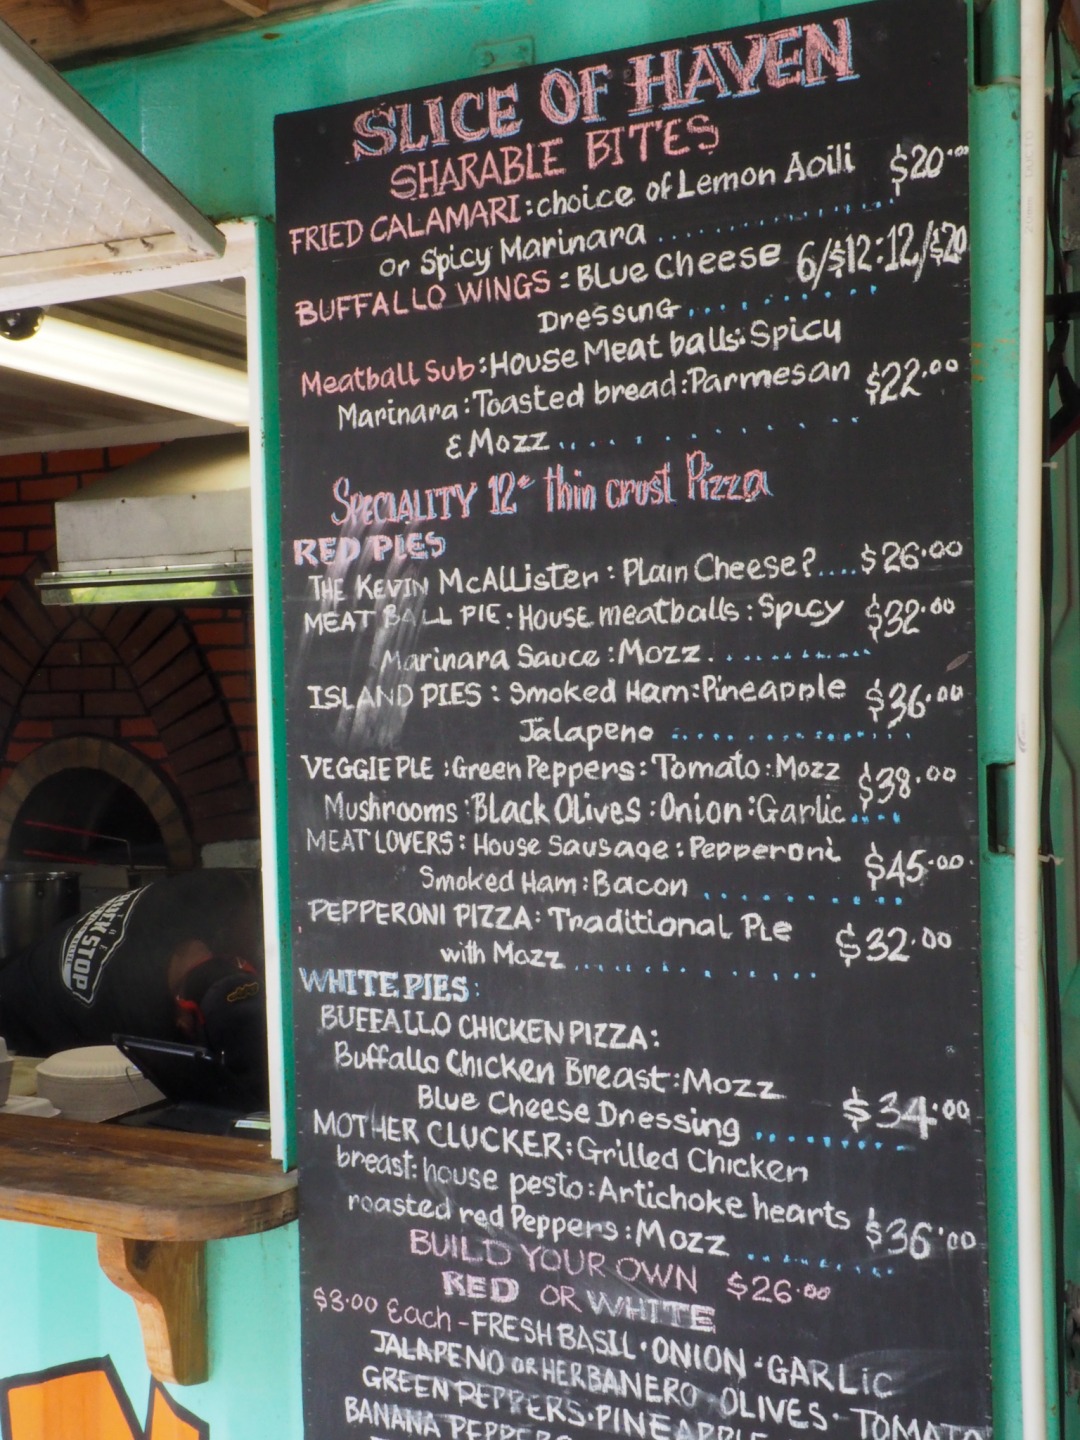 SLICE OF HAVEN
SHARABLE BITES
FRIED CALAMARI: choice of Lemon Aoili $20.00
or Spicy Marinara
BUFFALLO WINGS: BLUE Cheese 6/$12:12/$20
Dressing
Meatball Sub: House Meat balls: Spicy
Marinara: Toasted bread: Parmesan $22.00
& Mozz
SPECIALITY 12" thin crust Pizza
RED PIES
THE KEVIN McALLister: PLain Cheese? $26.00
MEAT BALL PIE: House meatballs: Spicy $32.00
Marinara Sauce: Mozz.
ISLAND PIES: Smoked Ham: Pineapple $36.00
Jalapeno
VEGGIE PIE: Green Peppers: Tomato: Mozz $38.00
Mushrooms: Black Olives: Onion: Garlic
MEAT LOVERS: House Sausage: Pepperoni $45.00
Smoked Ham: Bacon
PEPPERONI PIZZA: Traditional Pie $32.00
with Mozz
WHITE PIES:
BUFFALLO CHICKEN PIZZA:
Buffallo Chicken Breast: Mozz
Blue Cheese Dressing $34.00
MOTHER CLUCKER: Grilled Chicken
breast: house pesto: Artichoke hearts
roasted red Peppers: Mozz $36.00
BUILD YOUR OWN $26.00
RED OR WHITE
$3.00 Each - FRESH BASIL · ONION · GARLIC
JALAPENO OR HERBANERO OLIVES · TOMATO
GREEN PEPPERS · PINEAPPLE
BANANA PEPPERS
STOP